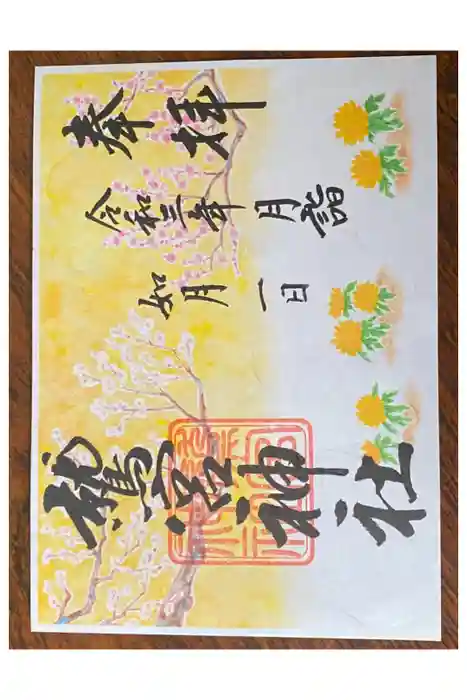 奉拝
令和三年 月詣
如月一日
鷲宮神社